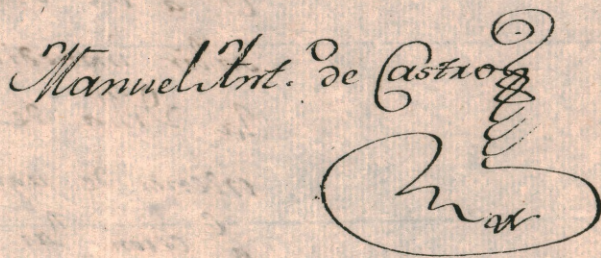 Manuel Ant. de Castro